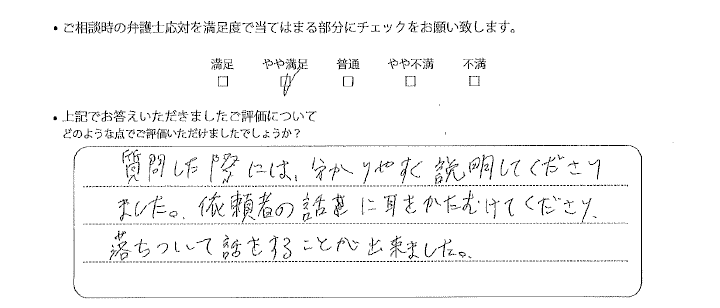 ・ご相談時の弁護士応対を満足度で当てはまる部分にチェックをお願い致します。
満足 やや満足 普通 やや不満 不満
・上記でお答えいただきましたご評価について
どのような点でご評価いただけましたでしょうか？
質問した際には、分かりやすく説明してくださり
ました。依頼者の話に耳をかたむけてくださり、
落ちついて話をすることが出来ました。